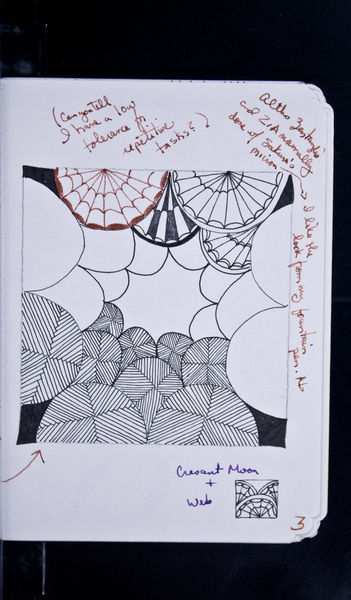 (can you tell
I have a low
tolerance for
repetitive
tasks?)
Altho Zentangle's
and ZIA normally
done w/ Sakura's
micron
→ I like the
look from my fountain
pen.
Cresant Moon
+
Web
3